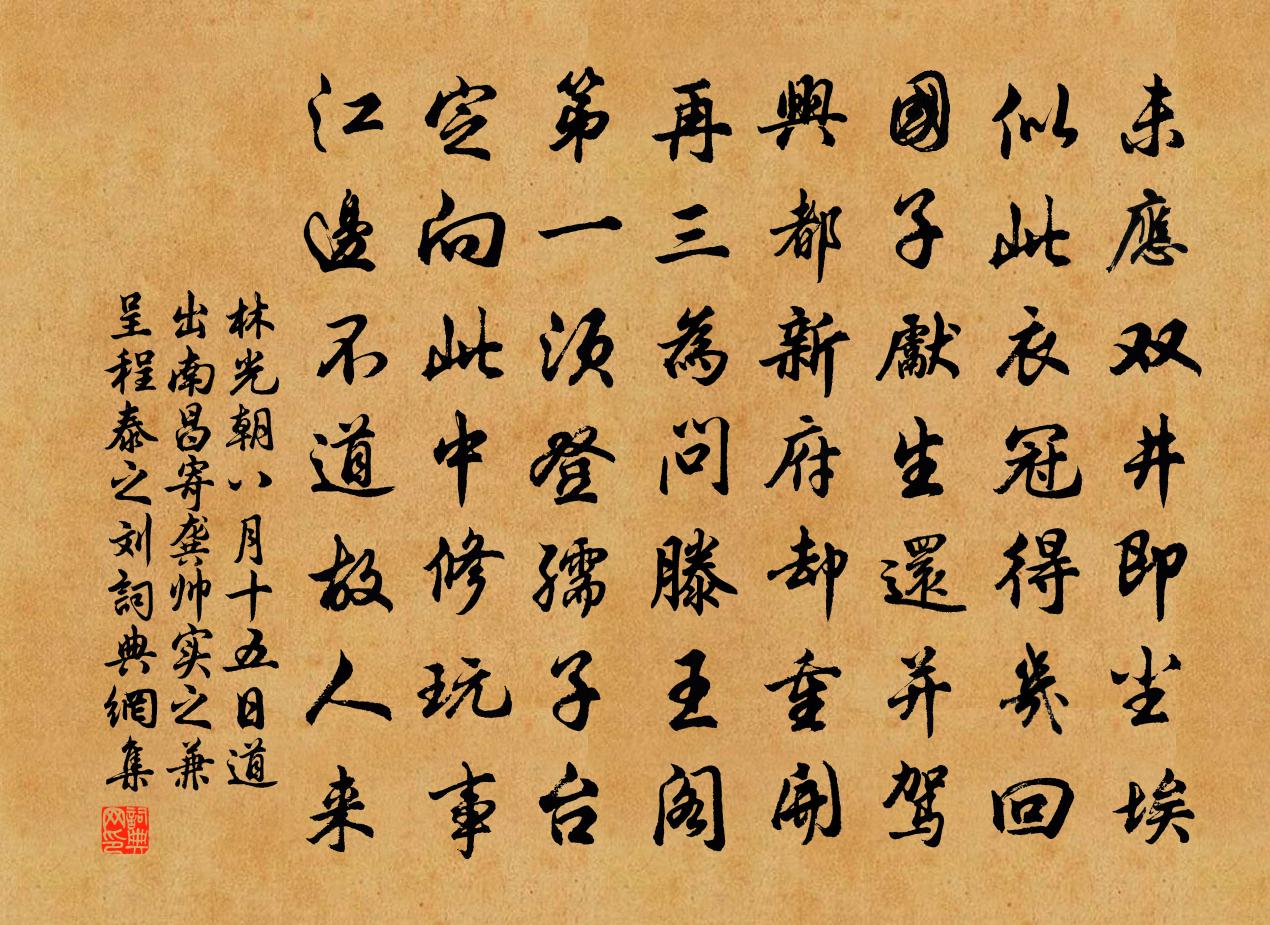 未應双井即尘埃
似此衣冠得幾回
國子獻生還并驾
興都新府却重開
再三為問滕王阁
第一须登孺子台
定向此中修玩事
江邊不道故人来
林光朝八月十五日道
出南昌寄龚帅实之兼
呈程泰之刘詞典網集
詞典
网印